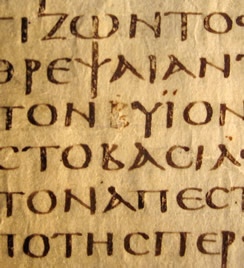 ΓΙΖΩΝΤΟϹ
ΘΡΕΨΑΙΑΝΤ
ΤΟΝΥΪΟΝ
ϹΤΟΒΑϹΙΛ
ΤΟΝΑΠΕϹΤ
ΠΟΤΗϹΠΕΡ